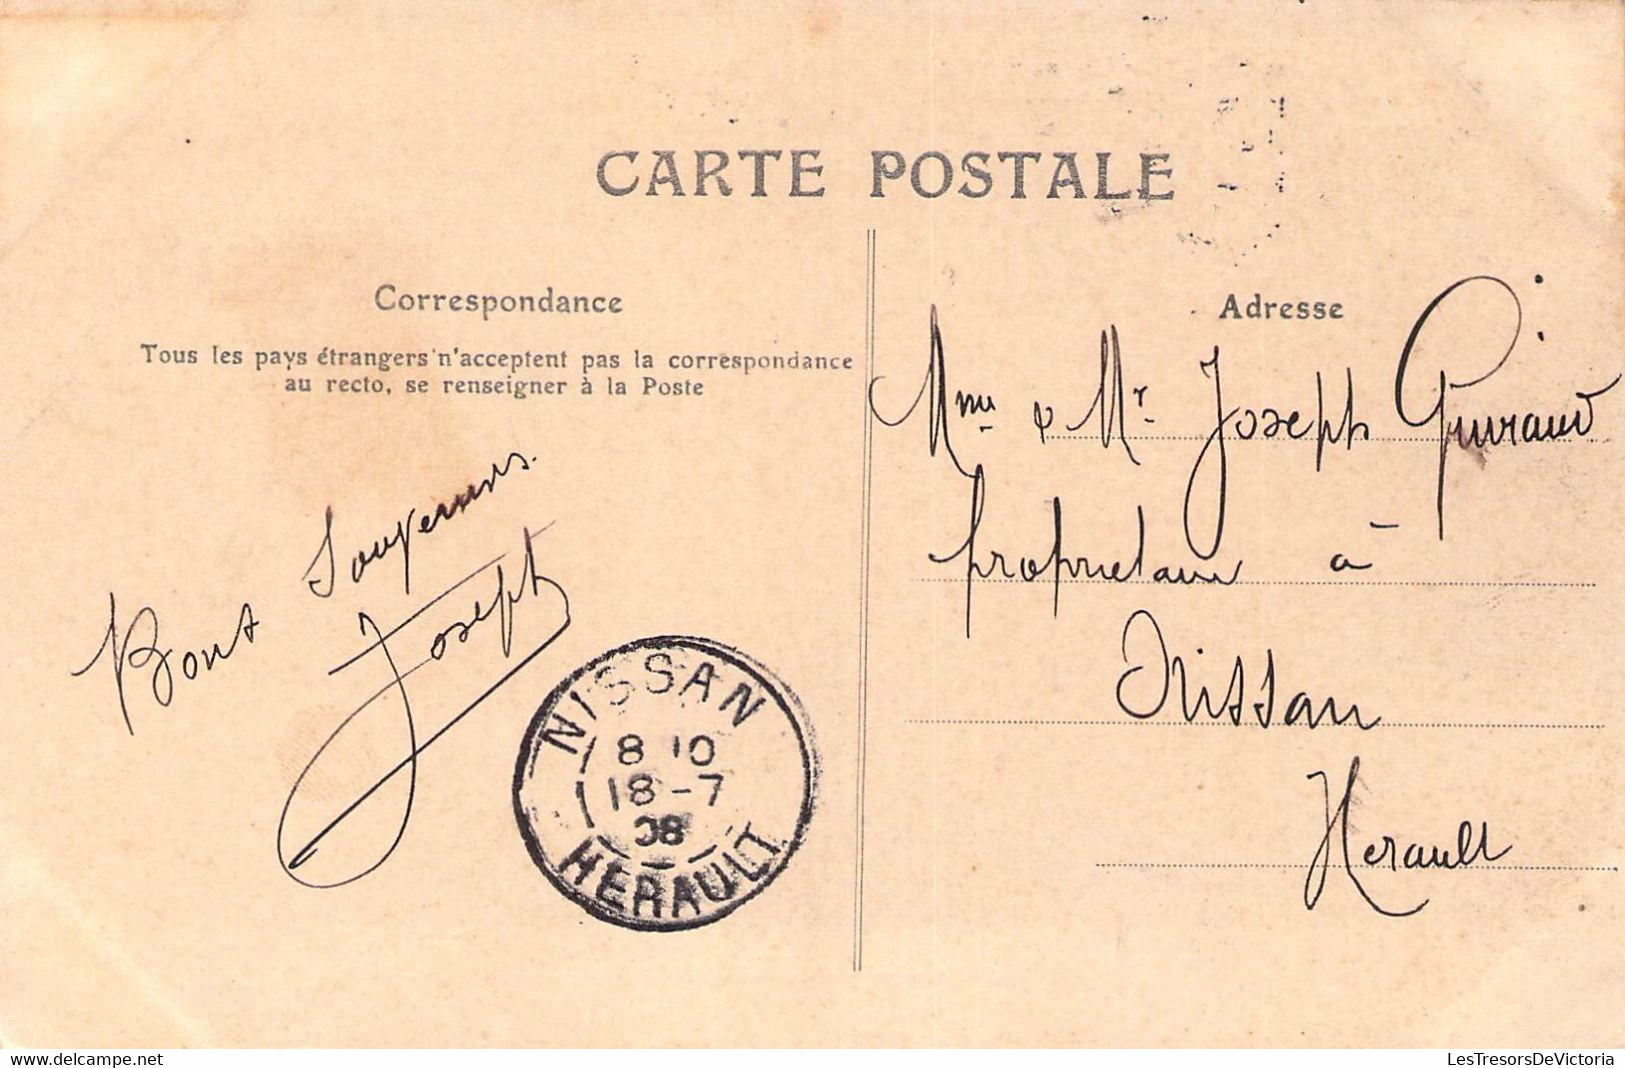 CARTE POSTALE
Correspondance
Tous les pays étrangers n'acceptent pas la correspondance
au recto, se renseigner à la Poste
Bons Souvenirs.
Joseph
NISSAN
8 10
18-7
08
HERAULT
Adresse
Mme & Mr Joseph Guiraud
propriétaire à
Nissan
Herault
delcampe.net
LesTresorsDeVictoria